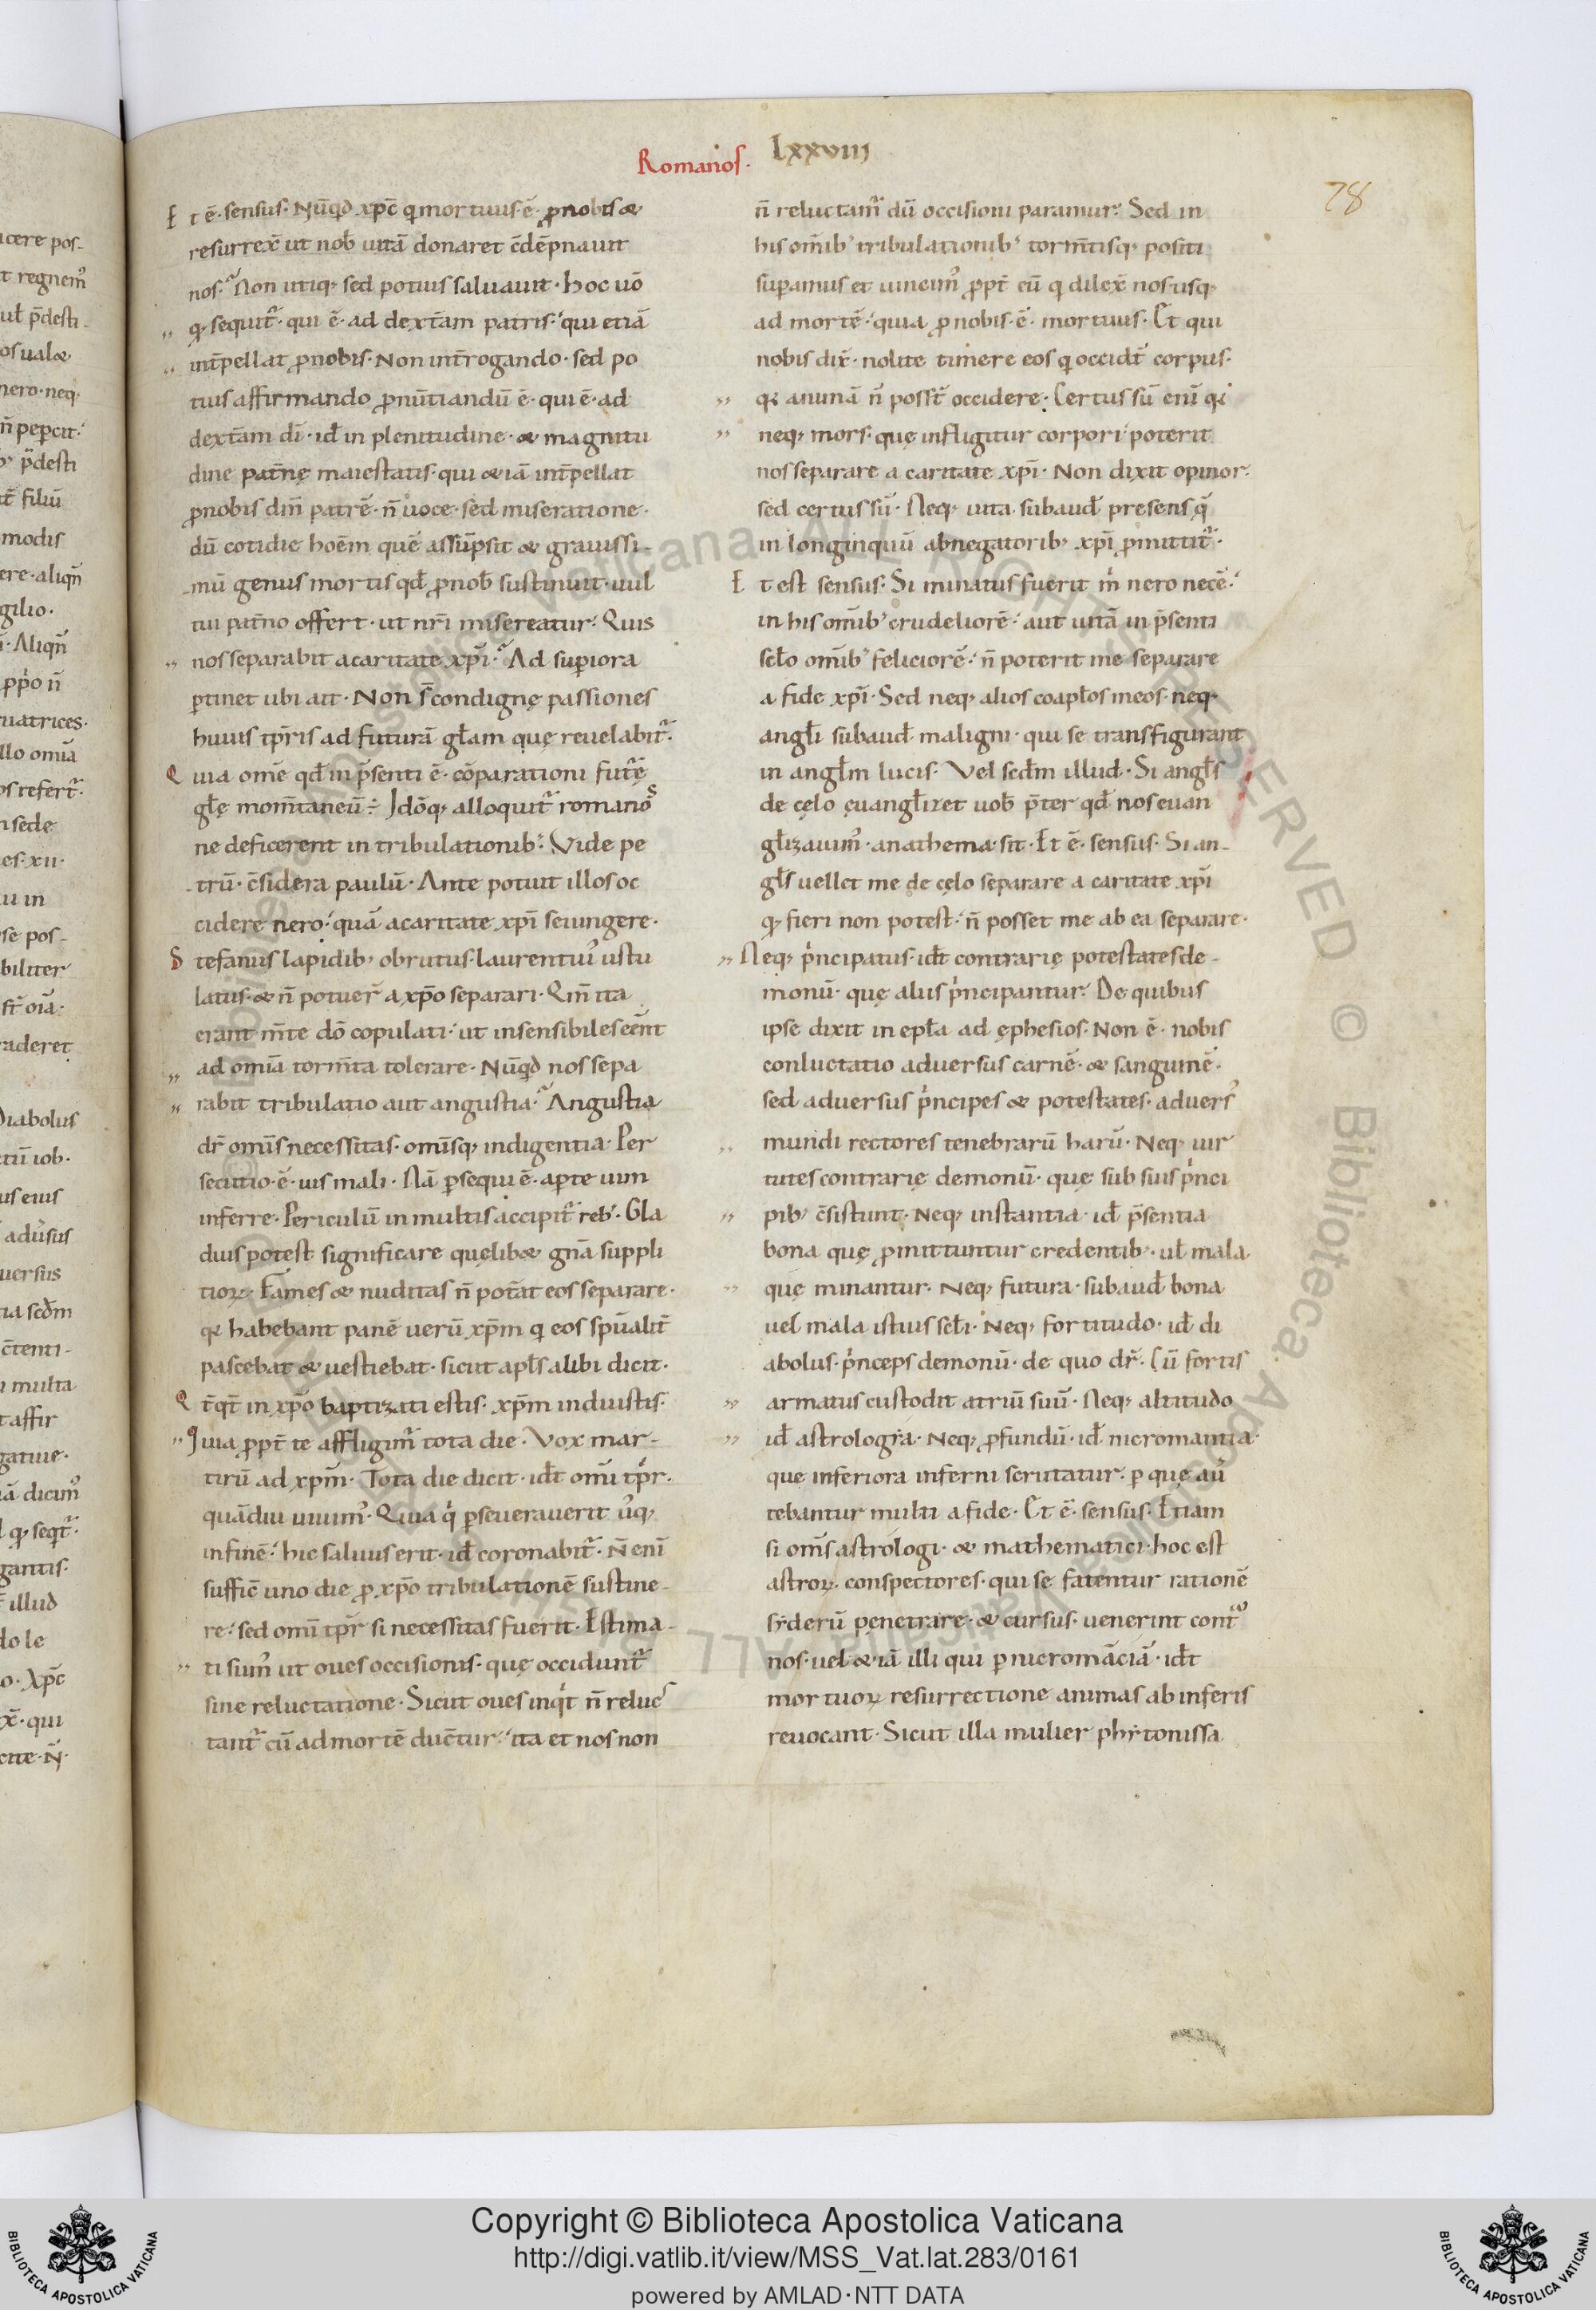 Romanos. Lxxviii
78
Et ē. sensus. Nūqd xpc̄ q mortuus. ē. ꝓnobis &
resurrex̄ ut nob̄ uitā donaret c̄dēpnauit
nos. Non utiq; sed potius saluauit. Hoc uō
q; sequit᷑. qui ē. ad dext̄am patris. qui etiā
int̄pellat ꝓnobis. Non int̄rogando. sed po
tius affirmando ꝓnūtiandū ē. qui ē. ad
dext̄am dī. id̄ in plenitudine. & magnitu
dine pat̄nę maiestatis. qui &iā int̄pellat
ꝓnobis dm̄ patrē. n̄ uoce. sed miseratione.
dū cotidie hoēm quē assūpsit & grauissi-
mū genus mortis qd̄ ꝓnob̄ sustinuit. uul
tui pat̄no offert. ut nr̄i misereatur. Quis
nos separabit acaritate xpī. Ad supiora
ꝑtinet ubi ait. Non s̄ condignę passiones
huius tp̄ris ad futurā gl̄am quę reuelabit᷑.
Quia omē qd̄ in p̄senti ē. cōparationi fut̄ę
gl̄ę mom̄taneū ÷ Idōq; alloquit᷑ romanos
ne deficerent in tribulationib;. Vide pe
trū. c̄sidera paulū. Ante potuit illos oc
cidere nero. quā acaritate xpī seiungere.
Stefanus lapidib; obrutus. laurentiuˀ ustu
latus. & n̄ potuer̄ a xp̄o separari. Qm̄ ita
erant m̄te dō copulati. ut insensibiles eēnt
ad omīa torm̄ta tolerare. Nūqd nos sepa
rabit tribulatio aut angustia. Angustia
dr̄ omīs necessitas. omīsq; indigentia. Per
secutio. ē. uis mali. Nā ꝑsequi ē. aꝑte uim
inferre. Periculū in multis accipit᷑ reb;. Gla
dius potest significare quęlib& gn̄a suppli
tioꝝ. Fames & nuditas n̄ pot̄at eos separare.
qͥ habebant panē uerū xp̄m q eos spūalit̄
pascebat & uestiebat. sicut apl̄s alibi dicit.
Qt̄qt̄ in xp̄o baptizati estis. xp̄m induistis.
Quia ꝓpt̄ te affligim᷑ tota die. Vox mar-
tirū ad xpm̄. Tota die dicit. id̄t omī tp̄r.
quādiu uiuimˀ. Quia qͥ ꝑseuerauerit ūq;
infinē. hic saluus erit. id̄ coronabit᷑. N̄ enī
suffic̄ uno die ꝓ xp̄o tribulationē sustine-
re. sed omī tp̄r si necessitas fuerit. Estima-
ti sumˀ ut oues occisionis. quę occidunt᷑
sine reluctatione. Sicut oues inqͥt n̄ reluc
tant᷑ cū ad mortē duct̄ur. ita et nos non
n̄ reluctam᷑ dū occisioni paramur. Sed in
his omīb; tribulationib; torm̄tisq; positi
suꝑamus et uincimˀ ꝓpt̄ eū q dilex̄ nos usq;
ad mortē. quia ꝓ nobis. ē. mortuus. Et qui
nobis dix̄. nolite timere eos q occidt̄ corpus.
qͥ animā n̄ posst̄ occidere. Certus sū enī qͥ
neq; mors. quę infligitur corpori poterit
nos separare a caritate xpī. Non dixit opinor.
sed certus sū. Neq; uita. subaud̄ presens q̄
in longinquū abnegatorib; xpī ꝓmittit᷑.
Et est sensus. Si minatus fuerit mͥ nero necē.
in his omīb; crudeliorē. aut uitā in p̄senti
scl̄o omīb; feliciorē. n̄ poterit me separare
a fide xpī. Sed neq; alios coapl̄os meos. neq;
angl̄i subaud̄ maligni. qui se transfigurant
in angl̄m lucis. Vel scd̄m illud. Si angl̄s
de cęlo ęuangl̄izet uob̄ p̄ter qd̄ nos euan
gl̄izauimˀ. anathema sit. Et ē. sensus. Si an-
gl̄s uellet me de cęlo separare a caritate xpī
q; fieri non potest. n̄ posset me ab ea separare.
Neq; pͥncipatus. id̄t contrarię potestates de-
monū. quę aliis pͥncipantur. De quibus
ipse dixit in epl̄a ad ęphesios. Non ē. nobis
conluctatio aduersus carnē. & sanguinē.
sed aduersus pͥncipes & potestates. aduersˀ
mundi rectores tenebrarū harū. Neq; uir
tutes contrarię demonū. quę sub suis pͥnci
pib; c̄sistunt. Neq; instantia. id̄ p̄sentia
bona quę ꝓmittuntur credentib;. ul̄ mala
quę minantur. Neq; futura. subaud̄ bona
uel mala istius scl̄i. Neq; fortitudo. id̄ di
abolus. pͥnceps demonū. de quo dr̄. Cū fortis
armatus custodit atriū suū. Neq; altitudo
id̄ astrologia. Neq; ꝓfundū. id̄ nicromantia.
que inferiora inferni scrutatur. ꝑ quę aū
tebantur multi a fide. Et ē. sensus. Etiam
si omīs astrologi. & mathematici. hoc est
astroꝝ. conspectores. qui se fatentur rationē
syderū penetrare. & cursus. uenerint cont᷑
nos. uel &iā illi qui ꝑ nicromāciā. id̄t
mortuoꝝ resurrectione animas ab inferis
reuocant. Sicut illa mulier phytonissa
Copyright © Biblioteca Apostolica Vaticana
http://digi.vatlib.it/view/MSS_Vat.lat.283/0161
powered by AMLAD·NTT DATA
BIBLIOTECA APOSTOLICA VATICANA
BIBLIOTECA APOSTOLICA VATICANA